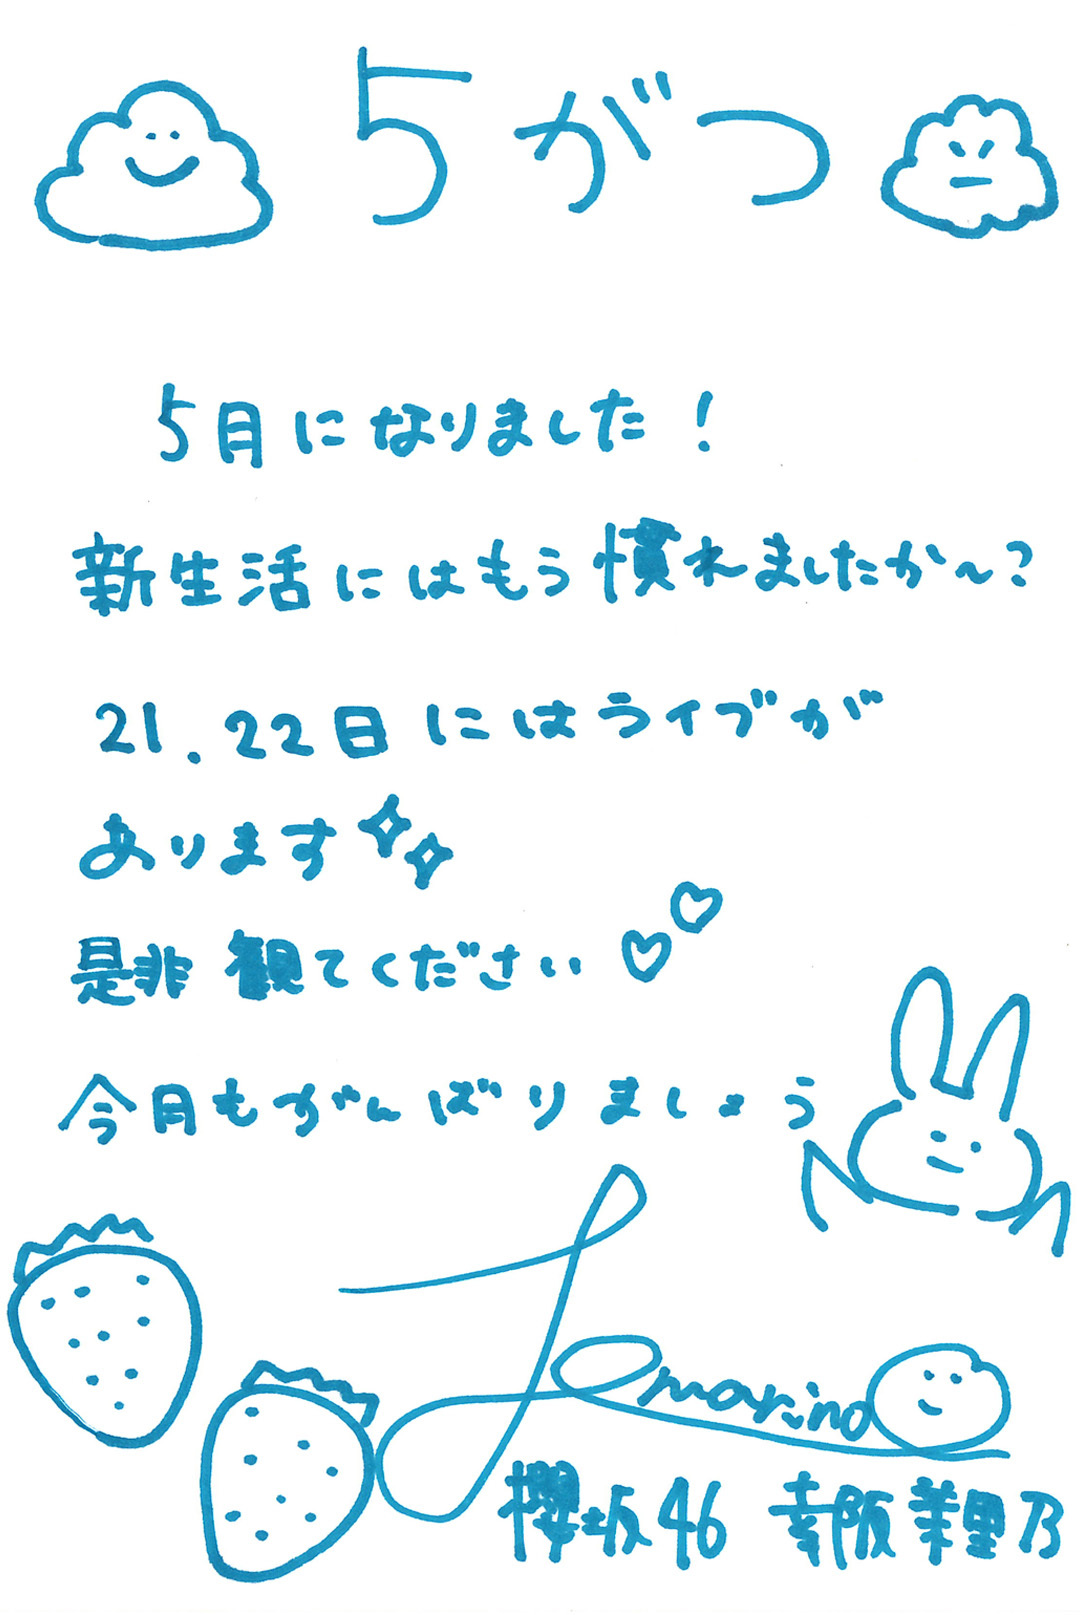 5がつ
5月になりました！
新生活にはもう慣れましたか〜？
21.22日にはライブが
あります
是非 観てください
今月もがんばりましょう
marino
櫻坂46 幸阪茉里乃